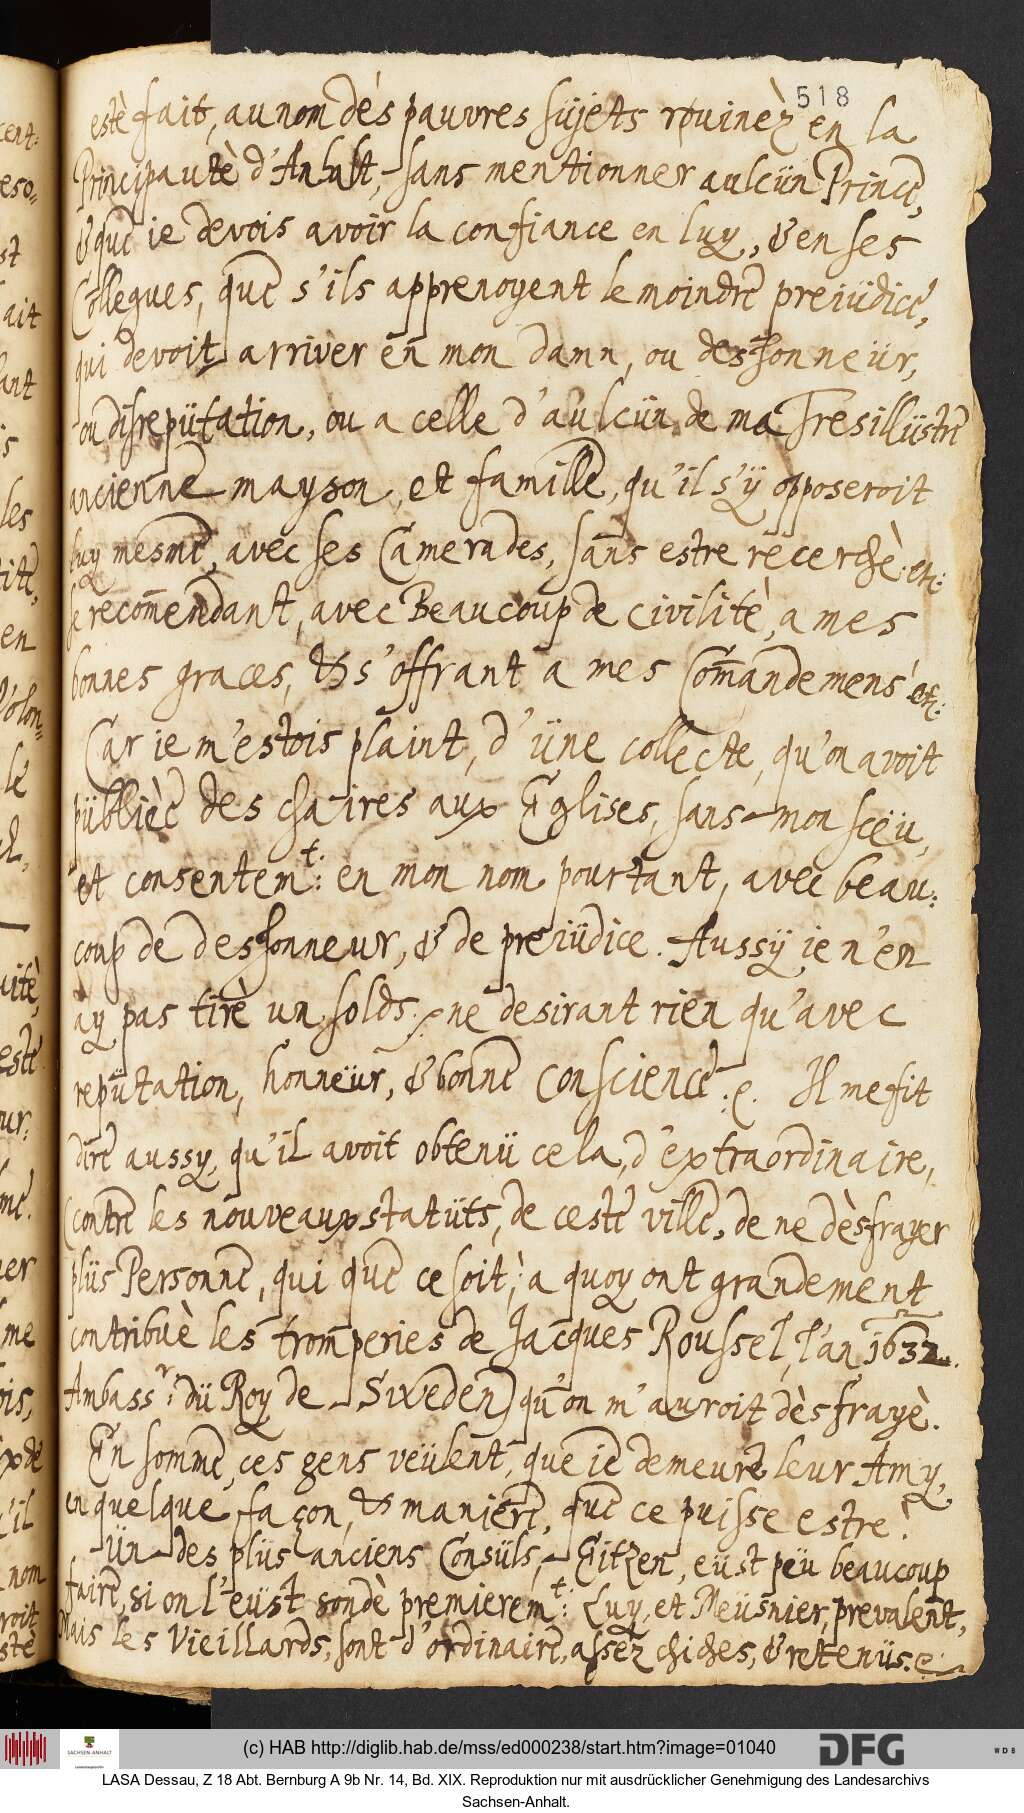 518
estè fait, au nom des pauvres sujets rouinèz en la
Principautè d'Anhalt, sans mentionner aulcün Prince,
& que ie devois avoir la confiance en luy, & en ses
Collegues, que s'ils apprenoyent le moindre preiüdice,
qui devoit arriver en mon damn, ou deshonneür,
ou disrepütation, ou a celle d'aulcün de ma Tresillüstre
ancienne mayson, et famille, qu'il s'ÿ opposeroit
luy mesme, avec ses Camerades, sans estre recerchè. etc:
se recom̄endant, avec Beaucoup de civilitè, a mes
bonnes graces, & s'offrant a mes Com̄andemens etc:
Car ie m'estois plaint, d'üne collecte, qu'on avoit
püblièe des chaires aux Eglises, sans mon sceü,
et consentem.t: en mon nom pourtant, avec beau:
coup de deshonneur, & de preiüdice. Aussÿ ie n'en
ay pas tirè un solds. ne desirant rien qu'avec
repütation, honneür, & bonne conscience. e. Il me fit
dire aussy, qu'il avoit obtenü cela, d'extraordinaire,
(contre les nouveaux statüts, de ceste ville, de ne dèsfrayer
plüs Personne, qui que ce soit; a quoy ont grandement
contribuè les tromperies de Jacques Roussel, l'an 1632.
Ambass.r: dü Roy de Sweden) qu'on m'auroit dèsfrayè.
En somme, ces gens veülent, que ie demeure leur Amy,
en quelque façon, & maniere, que ce puisse estre.
Ün des plüs anciens Consüls, Eitzen, eüst peü beaucoup
faire, si on l'eüst sondè premierem.t: Luy, et Meüsnier, prevalent,
Mais les Vieillards, sont d'ordinaire, assez chiches, & retenüs. e
(c) HAB http://diglib.hab.de/mss/ed000238/start.htm?image=01040
SACHSEN-ANHALT
DFG
WDB
LASA Dessau, Z 18 Abt. Bernburg A 9b Nr. 14, Bd. XIX. Reproduktion nur mit ausdrücklicher Genehmigung des Landesarchivs
Sachsen-Anhalt.